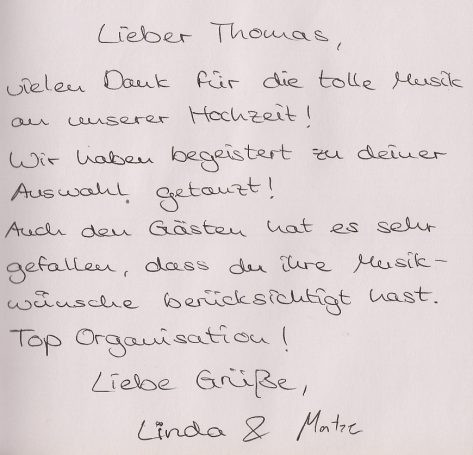 Lieber Thomas,
vielen Dank für die tolle Musik
an unserer Hochzeit!
Wir haben begeistert zu deiner
Auswahl getanzt!
Auch den Gästen hat es sehr
gefallen, dass du ihre Musik-
wünsche berücksichtigt hast.
Top Organisation!
Liebe Grüße,
Linda & Matze